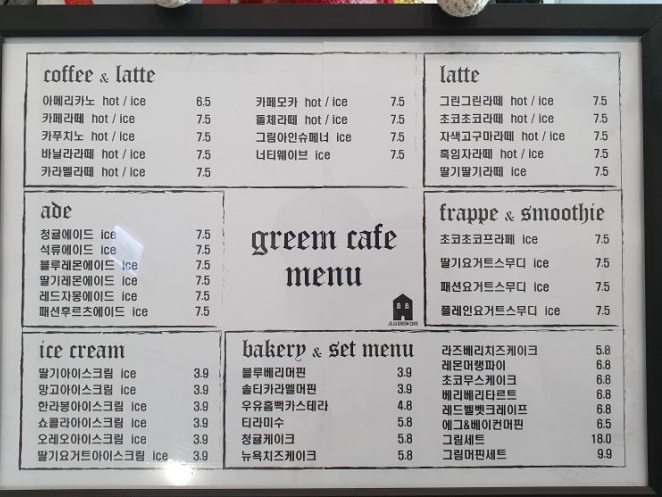 coffee & latte
아메리카노 hot / ice 6.5
카페라떼 hot / ice 7.5
카푸치노 hot / ice 7.5
바닐라라떼 hot / ice 7.5
카라멜라떼 hot / ice 7.5
카페모카 hot / ice 7.5
돌체라떼 hot / ice 7.5
그림아인슈페너 ice 7.5
너티웨이브 ice 7.5
latte
그린그린라떼 hot / ice 7.5
초코초코라떼 hot / ice 7.5
자색고구마라떼 hot / ice 7.5
흑임자라떼 hot / ice 7.5
딸기딸기라떼 ice 7.5
ade
청귤에이드 ice 7.5
석류에이드 ice 7.5
블루레몬에이드 ice 7.5
딸기레몬에이드 ice 7.5
레드자몽에이드 ice 7.5
패션후르츠에이드 ice 7.5
greem cafe
menu
JEJU GREEM CAFE
frappe & smoothie
초코초코프라페 ice 7.5
딸기요거트스무디 ice 7.5
패션요거트스무디 ice 7.5
플레인요거트스무디 ice 7.5
ice cream
딸기아이스크림 ice 3.9
망고아이스크림 ice 3.9
한라봉아이스크림 ice 3.9
쇼콜라아이스크림 ice 3.9
오레오아이스크림 ice 3.9
딸기요거트아이스크림 ice 3.9
bakery & set menu
블루베리머핀 3.9
솔티카라멜머핀 3.9
우유흠뻑카스테라 4.8
티라미수 5.8
청귤케이크 5.8
뉴욕치즈케이크 5.8
라즈베리치즈케이크 5.8
레몬머랭파이 6.8
초코무스케이크 6.8
베리베리타르트 6.8
레드벨벳크레이프 6.8
에그&베이컨머핀 6.5
그림세트 18.0
그림머핀세트 9.9